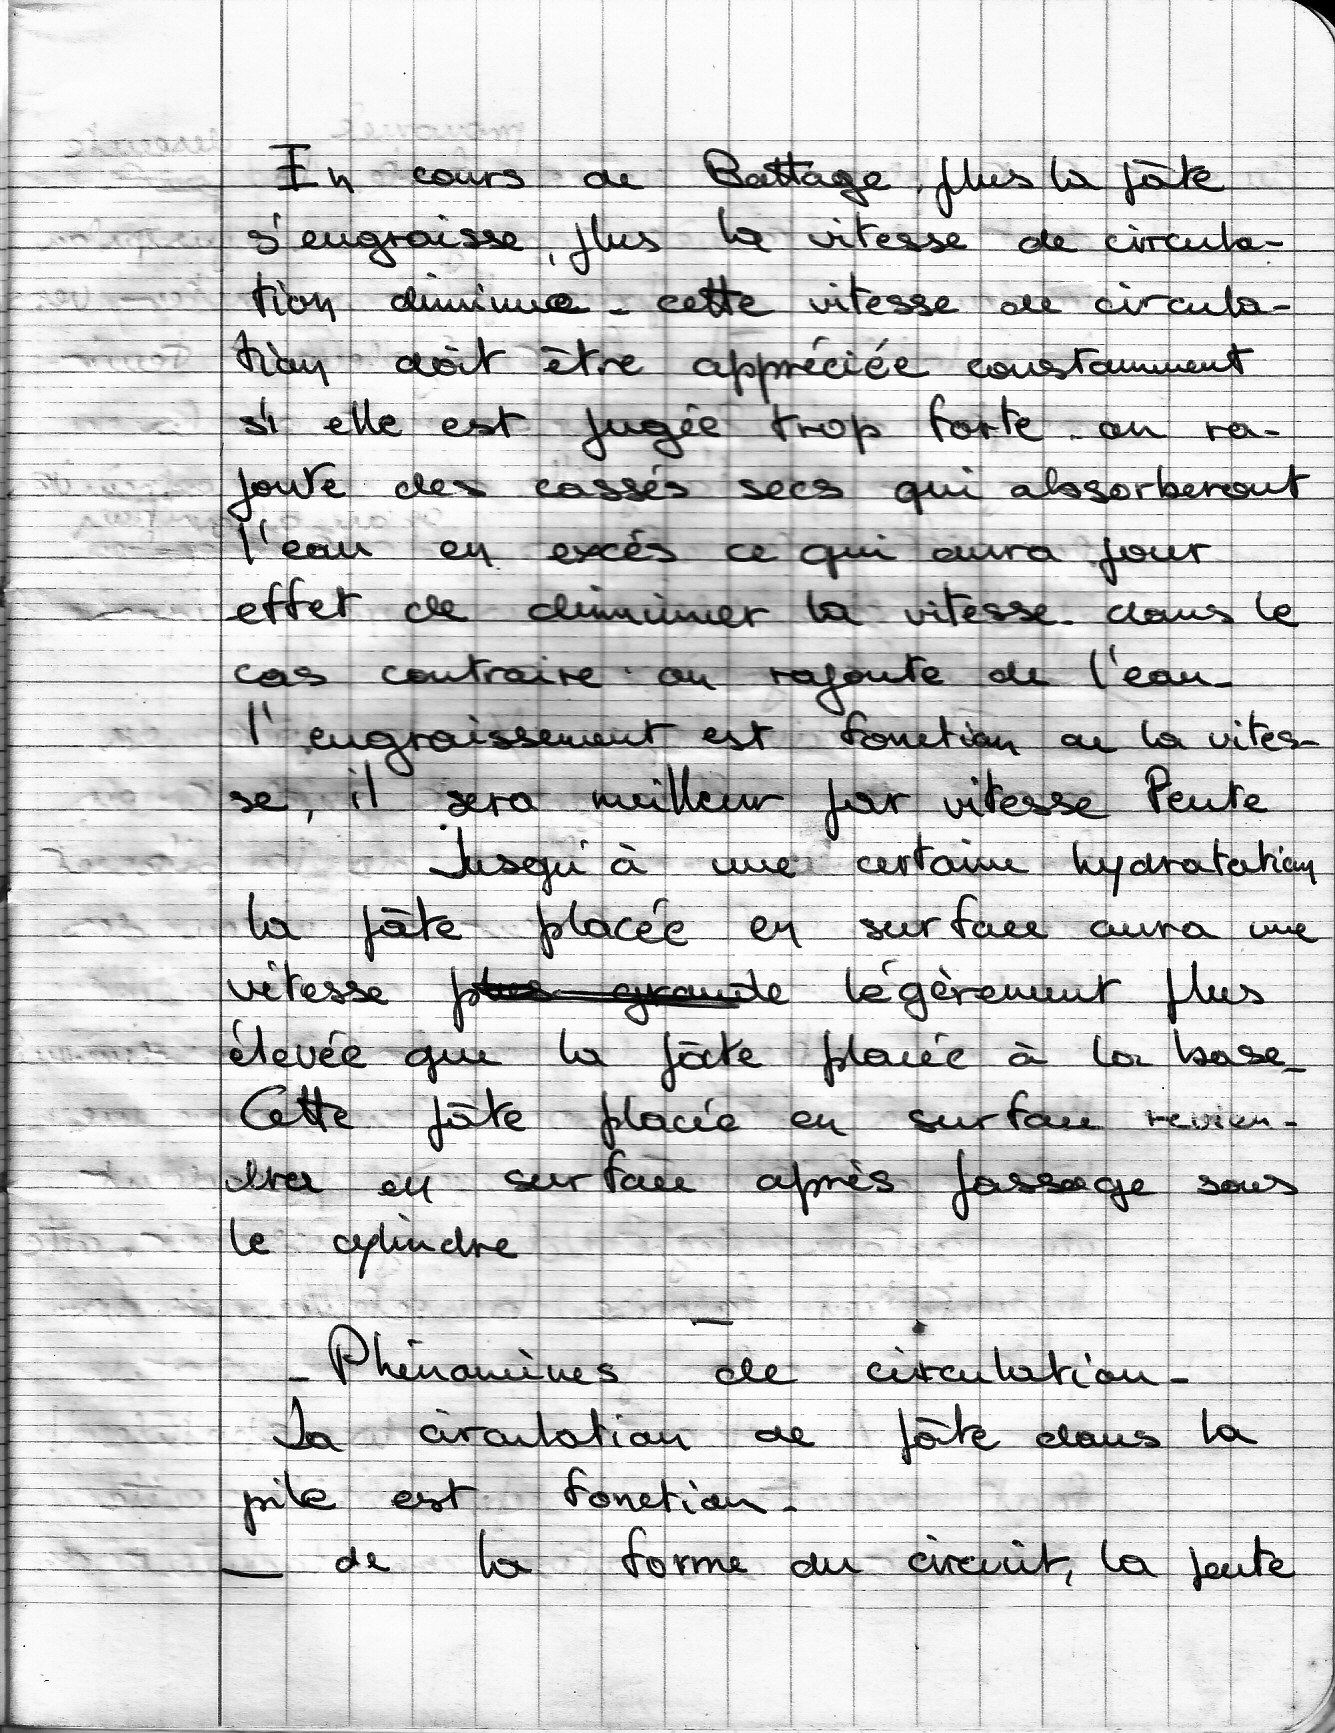 En cours de Battage, plus la pâte
s'engraisse, plus la vitesse de circula-
tion diminue - cette vitesse de circula-
tion doit être appréciée constamment
si elle est jugée trop forte on ra-
joute des cassés secs qui absorberont
l'eau en excés ce qui aura pour
effet de diminuer la vitesse - dans le
cas contraire on rajoute de l'eau -
l'engraissement est fonction de la vites-
se, il sera meilleur par vitesse lente
Jusqu'à une certaine hydratation
la pâte placée en surface aura une
vitesse plus grande légèrement plus
élevée que la pâte placée à la base -
Cette pâte placée en surface revien-
dra en surface après passage sous
le cylindre
- Phénomènes de circulation -
La circulation de pâte dans la
pile est fonction -
— de la forme du circuit, la pente